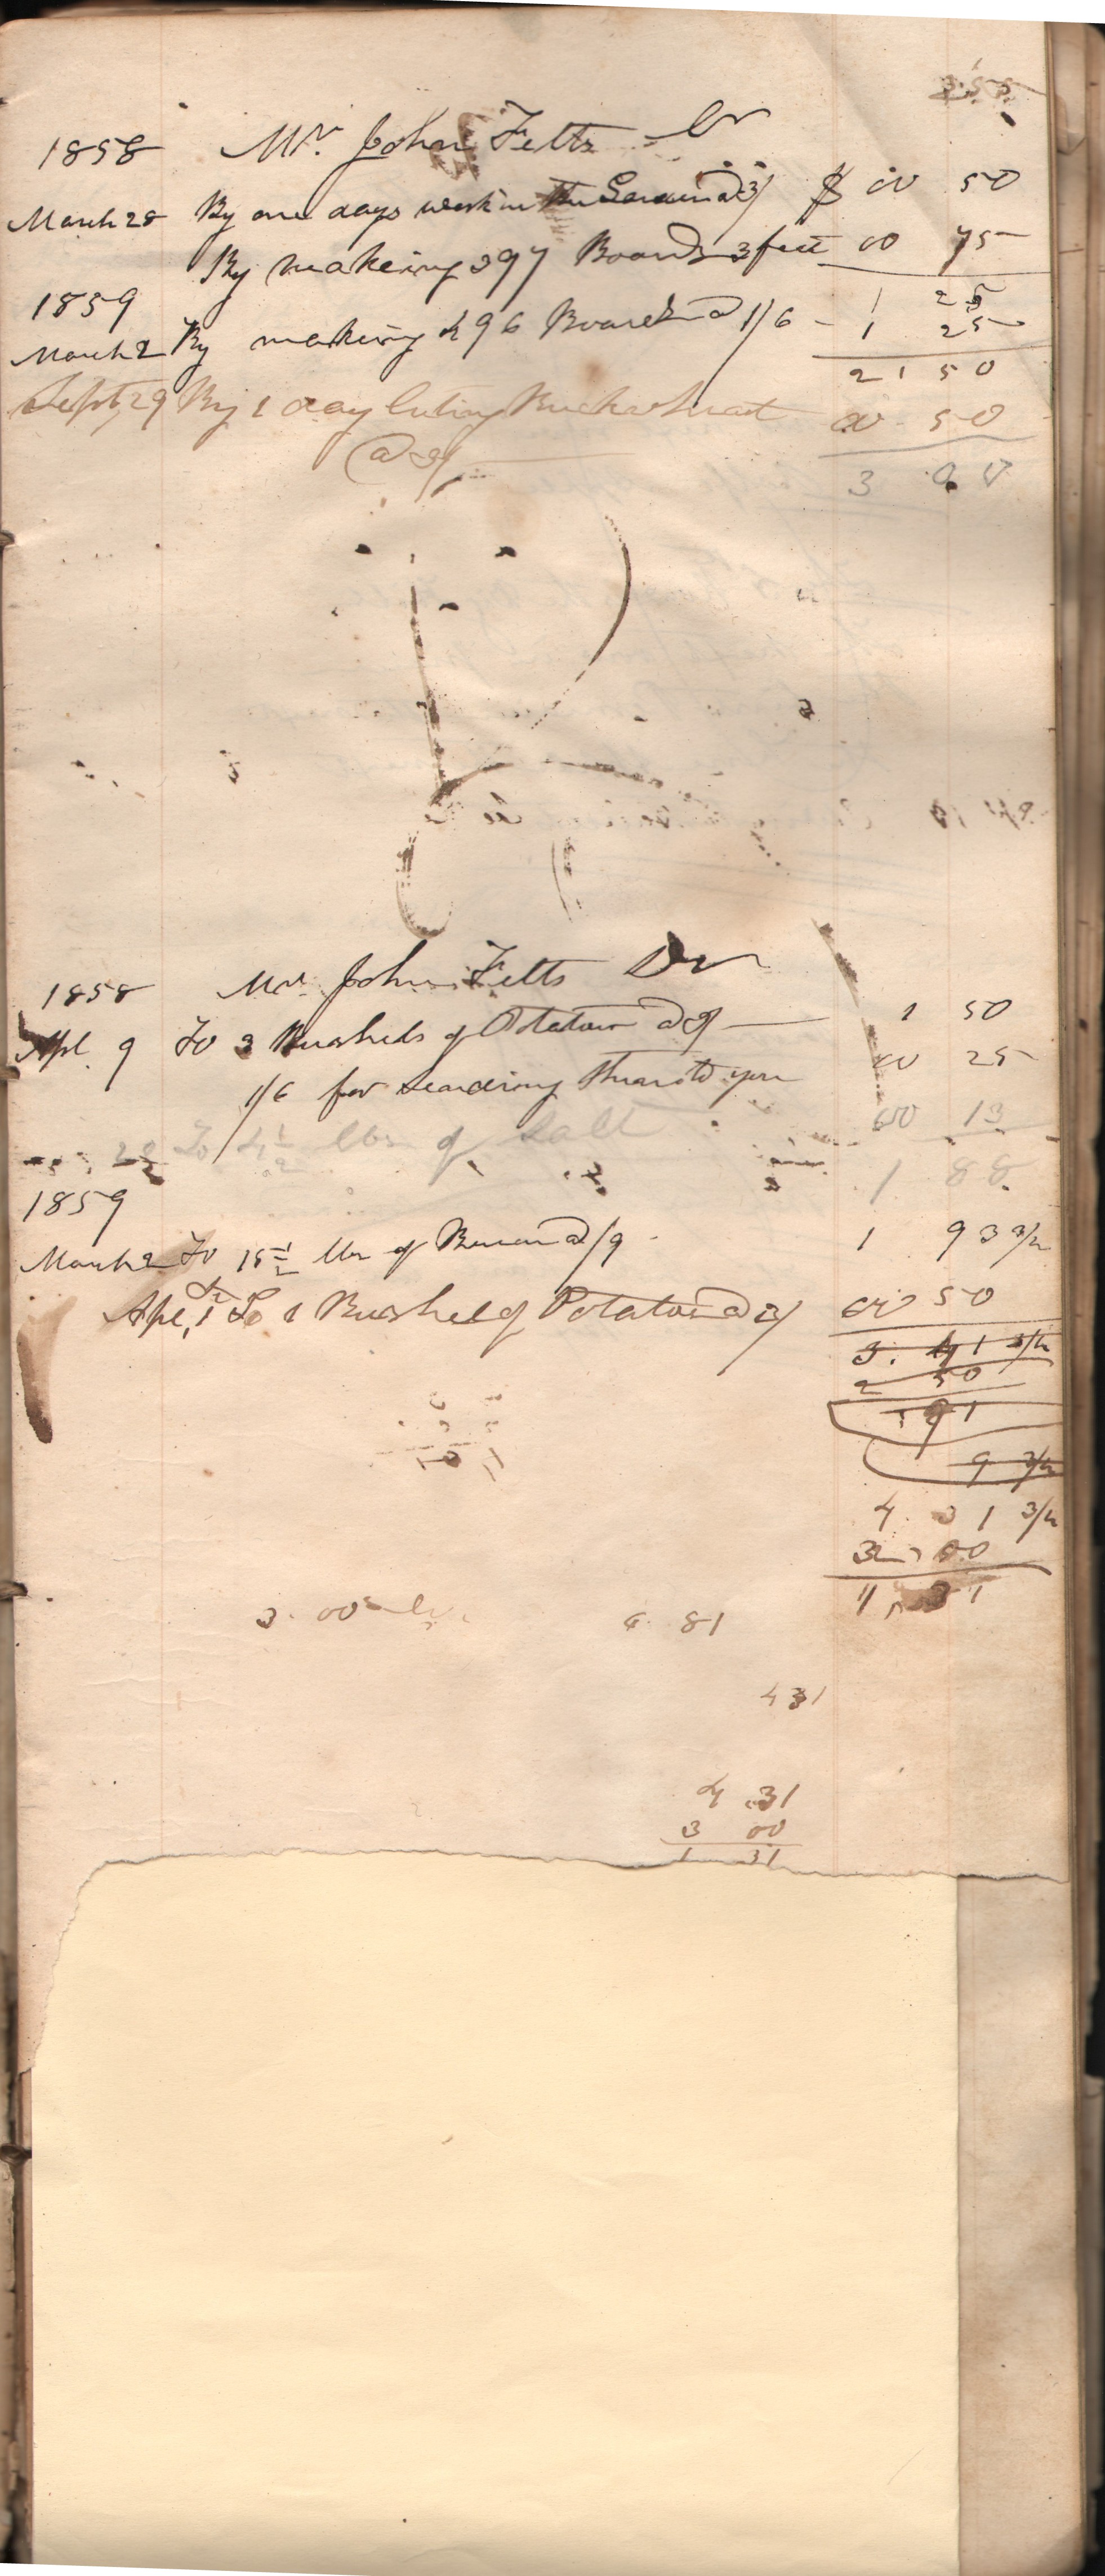 1858 Mr. John Felts Cr
March 28 By one days work in the @ 3/ $ 00 50
By making 397 Boards 3 feet 00 75
1 25
1859
March 2 By making 496 Boards @ 1/6 - 1 25
2 50
Sept, 29 By 1 day cuting Buckwheat 00 50
@ 3/
3 00
1858 Mr. John Felts Dr
Apl. 9 To 3 Bushels of Potatoes @ 3/ 1 50
1/6 for sending them to you 00 25
22 To 4 1/2 lbs of Salt 00 13
1 88
1859
March 2 To 15 1/2 lbs of Bacon @ /9 1 93 3/4
Apl, 1st To 1 Bushel of Potatoes @ 3/ 00 50
2 50
9 3/4
4. 31 3/4
3 00
1, 31
3. 00 Cr. 4 81
4 31
4 31
3 00
1 31